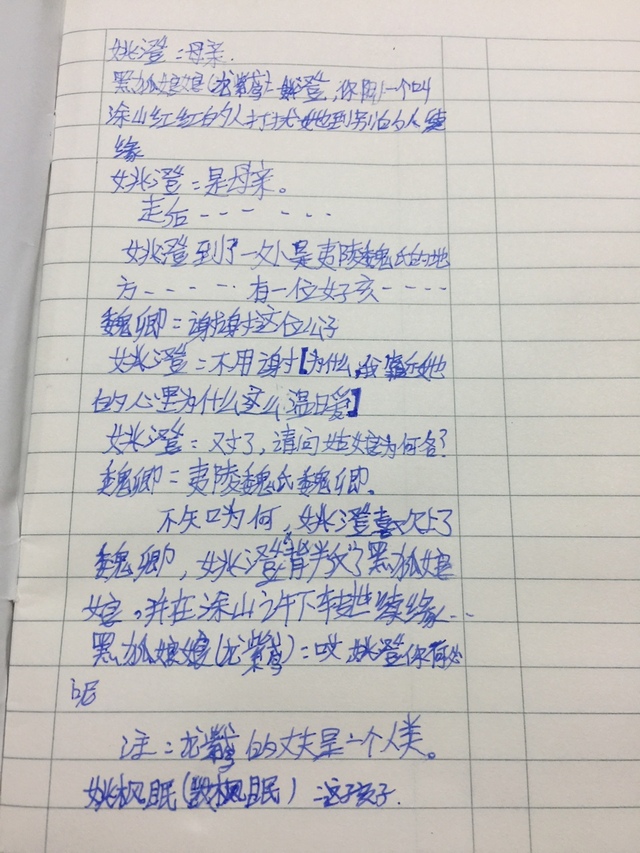 姚澄：母亲.
黑狐娘娘(龙紫鸢)：姚澄，你用一个叫
涂山红红的人打扰她到别的人续
缘
姚澄：是母亲。
走后------
姚澄到了一处小是夷陵魏氏的地
方-----有一位女子孩----
魏卿：谢谢这位公子
姚澄：不用谢[为什么，我靠近她
的心里为什么这么温暖]
姚澄：对了，请问姑娘为何名？
魏卿：夷陵魏氏魏卿。
不知为何，姚澄喜欢上了
魏卿，姚澄背判了黑狐娘
娘，并在涂山许下转世续缘...
黑狐娘娘(龙紫鸢)：哎姚澄你何必
呢
注：龙紫鸢的丈夫是一个人类。
姚枫眠( 枫眠)：这孩子.